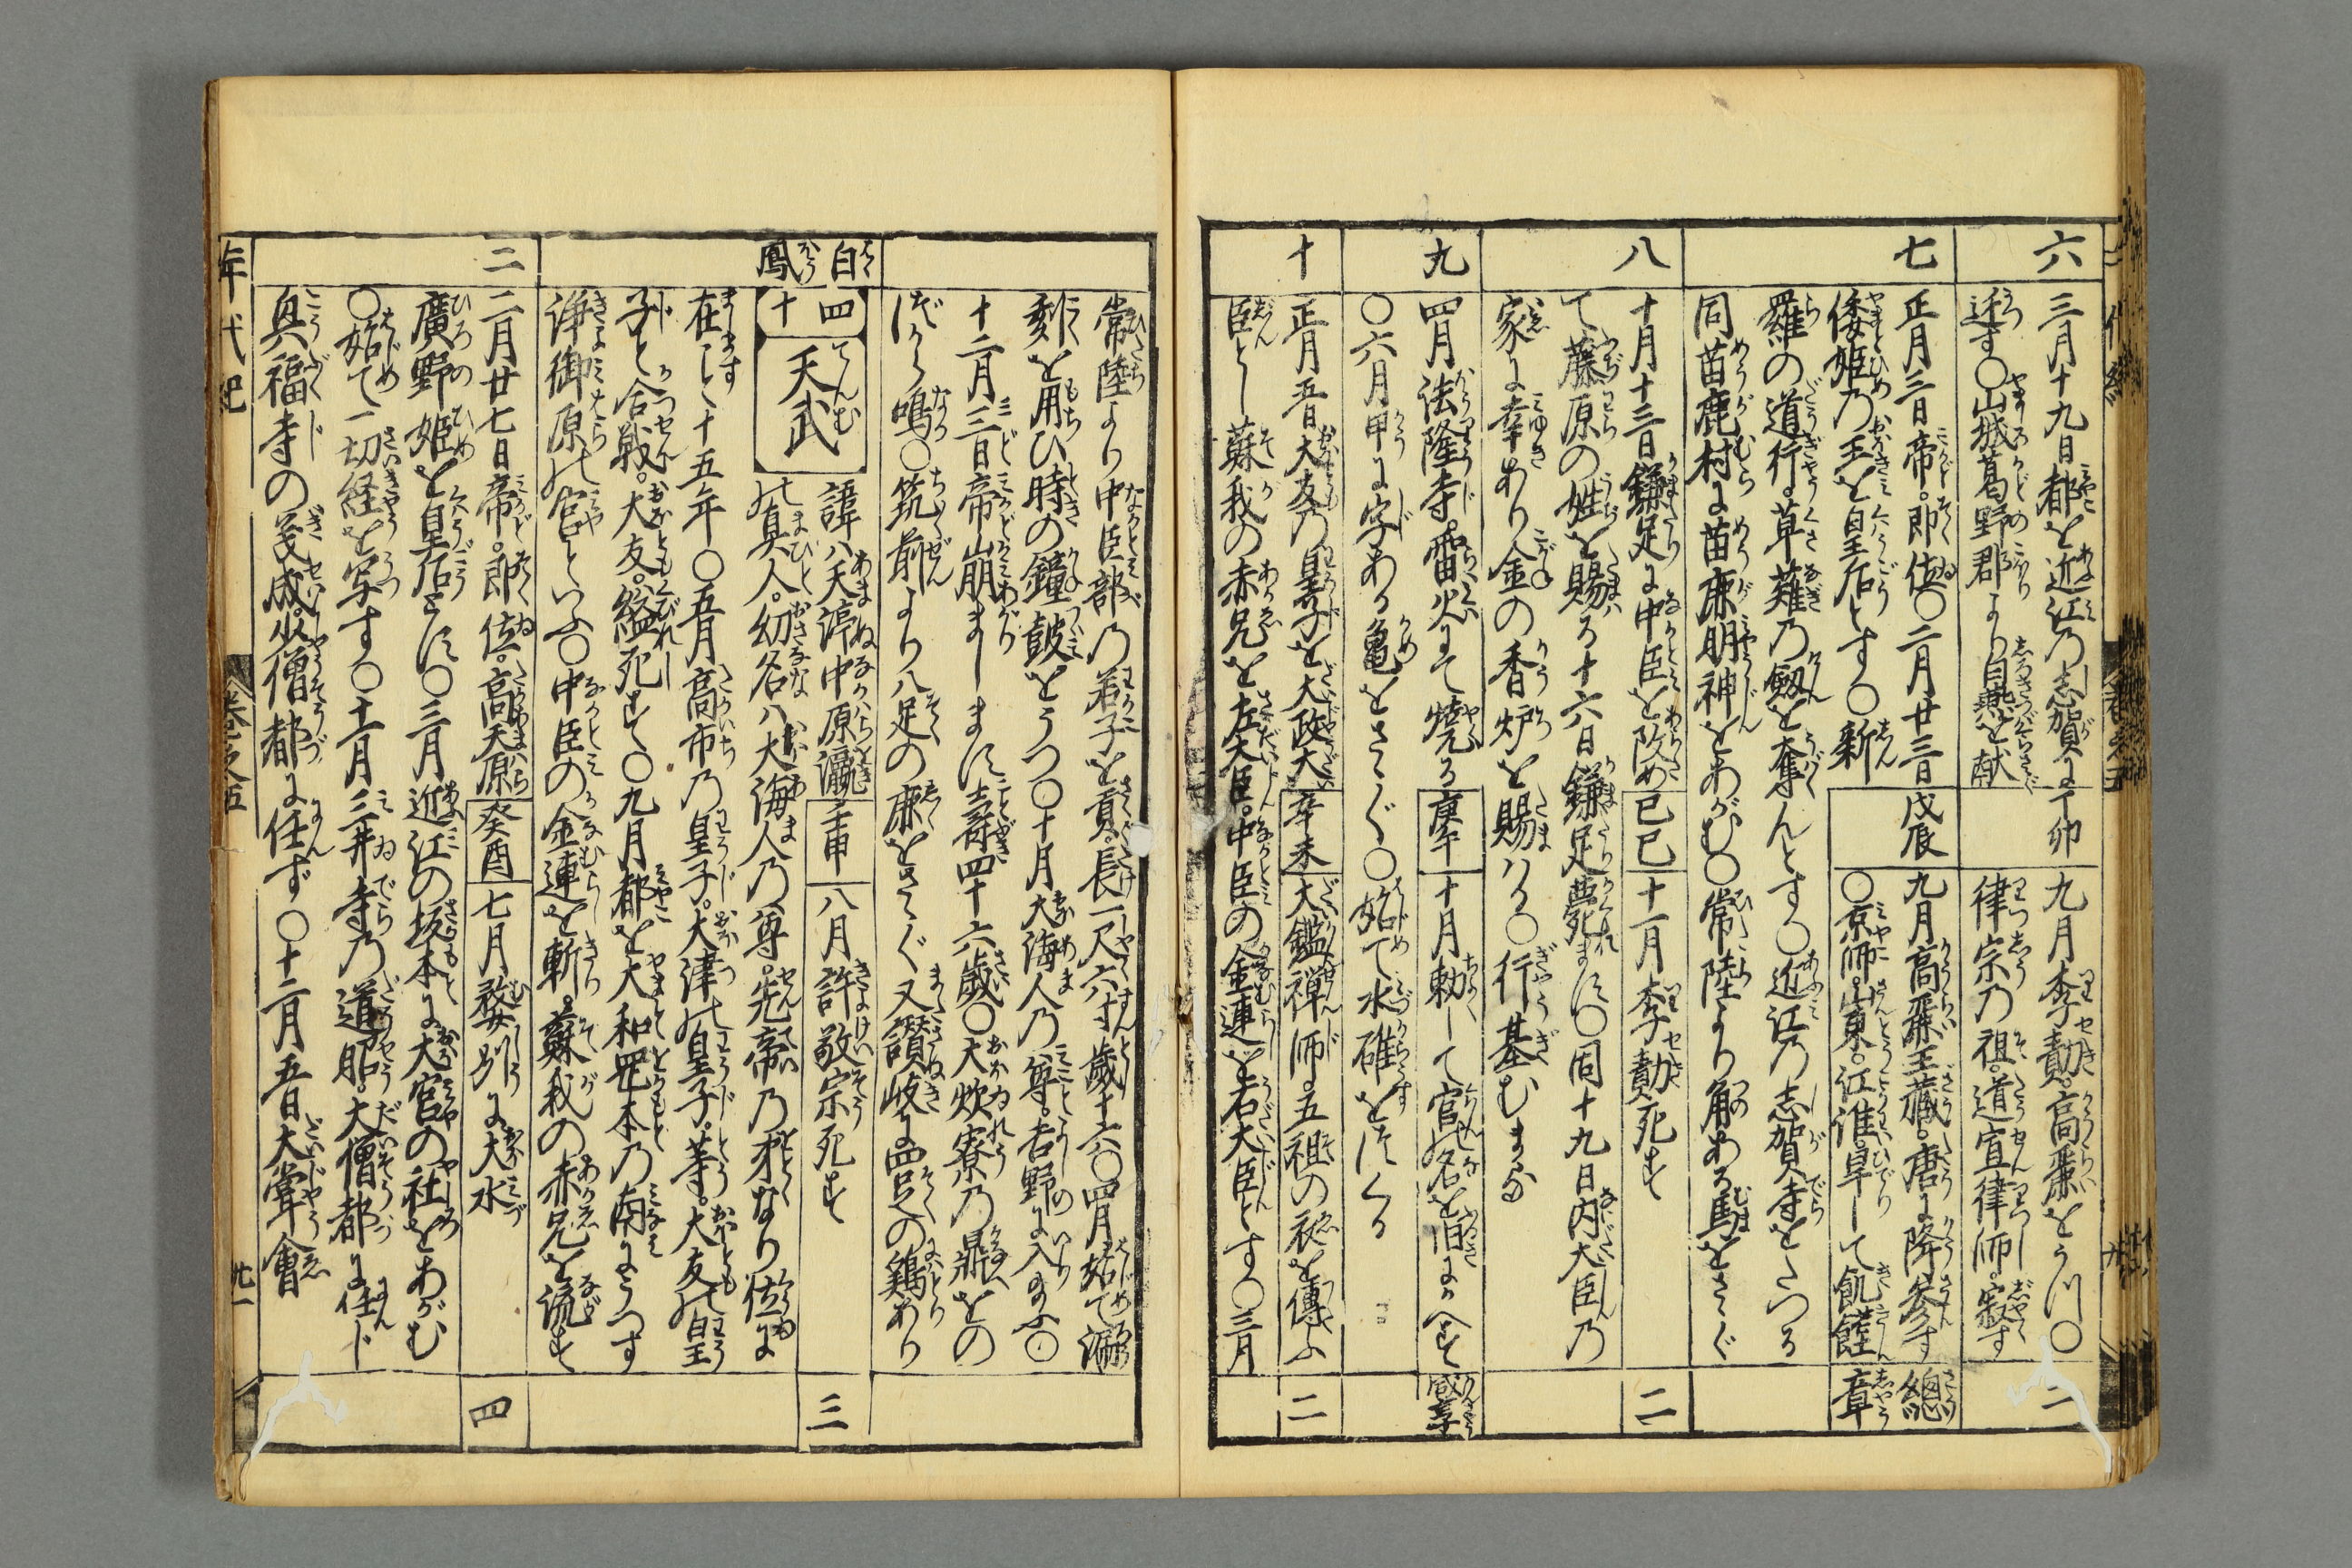 六
三月十九日都を近江乃志賀に
丁卯
九月李勣高麗をうつ〇
二
迁す〇山城葛野郡より白燕を献
律宗乃祖道宣律師寂す
七
正月三日帝即位〇二月廿三日
戊辰
九月高麗王蔵唐に降参す
總
倭姫乃王を皇后とす〇新
〇京師山東江淮旱して飢饉
章
羅の道行草薙乃劔を奪んとす〇近江乃志賀寺をたつる
同苗鹿村に苗鹿明神をあがむ〇常陸より角ある馬をさゝぐ
八
十月十三日鎌足に中臣を改め
己巳
十二月李勣死す
二
て藤原の姓を賜る十六日鎌足薨ます〇同十九日内大臣乃
家に幸あり金の香炉を賜はる〇行基むまる
九
四月法隆寺雷火にて焼る
庚午
十月勅して官の名を旧にかへす
咸亨
〇六月甲に字ある亀をさゝぐ〇始て水碓をつくる
十
正月五日大友乃皇子を太政大
辛未
大鑑禅師五祖の衣を傳ふ
二
臣とし蘇我の赤兄を左大臣中臣の金連を右大臣とす〇三月
常陸より中臣部乃若子を貢長一尺六寸歳十六〇四月始て漏
刻を用ひ時の鐘鼓をうつ〇十月大海人乃尊吉野に入給ふ〇
十二月三日帝崩まします壽四十六歳〇大炊寮乃鼎をの
づから鳴〇筑前より八足の鹿をさゝぐ又讃岐に四足の鶏あり
白鳳
四十
天武
諱ハ天渟中原瀛
壬申
八月許敬宗死す
三
の真人幼名ハ大海人乃尊先帝乃弟なり位に
在こと十五年〇五月高市乃皇子大津の皇子等大友の皇
子と合戦大友縊死す〇九月都を大和岡本乃南にうつす
浄御原の宮といふ〇中臣の金連を斬蘇我の赤兄を流す
二
二月廿七日帝即位高天原
癸酉
七月婺州に大水
四
廣野姫を皇后とす〇三月近江の坂本に大宮の社をあがむ
〇始て一切経を写す〇十二月三井寺乃道昭大僧都に任じ
興福寺の義成少僧都に任ず〇十二月五日大嘗會
年代紀
巻之五
廿一